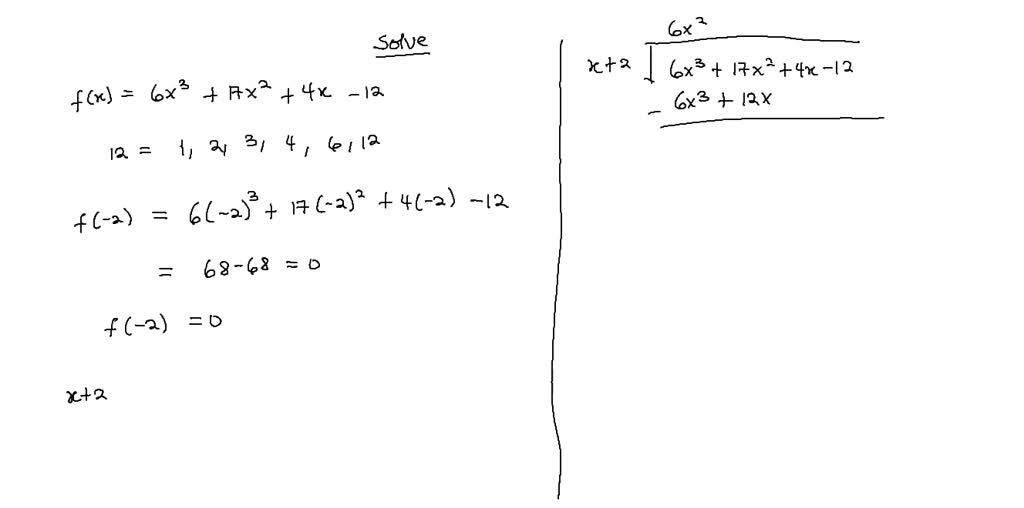 Solve
f(x) = 6x³ + 17x² + 4x - 12
12 = 1, 2, 3, 4, 6, 12
f(-2) = 6(-2)³ + 17(-2)² + 4(-2) - 12
= 68 - 68 = 0
f(-2) = 0
x+2
6x²
x+2 6x³ + 17x² + 4x - 12
- 6x³ + 12x